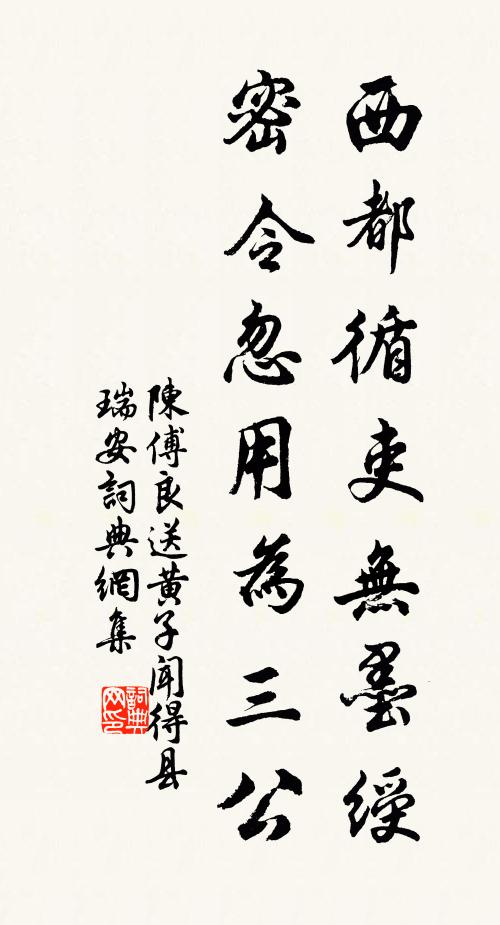 西都循吏無墨綬
密令忽用為三公
陳傅良送黃子聞得县
瑞安詞典網集
詞典
网印